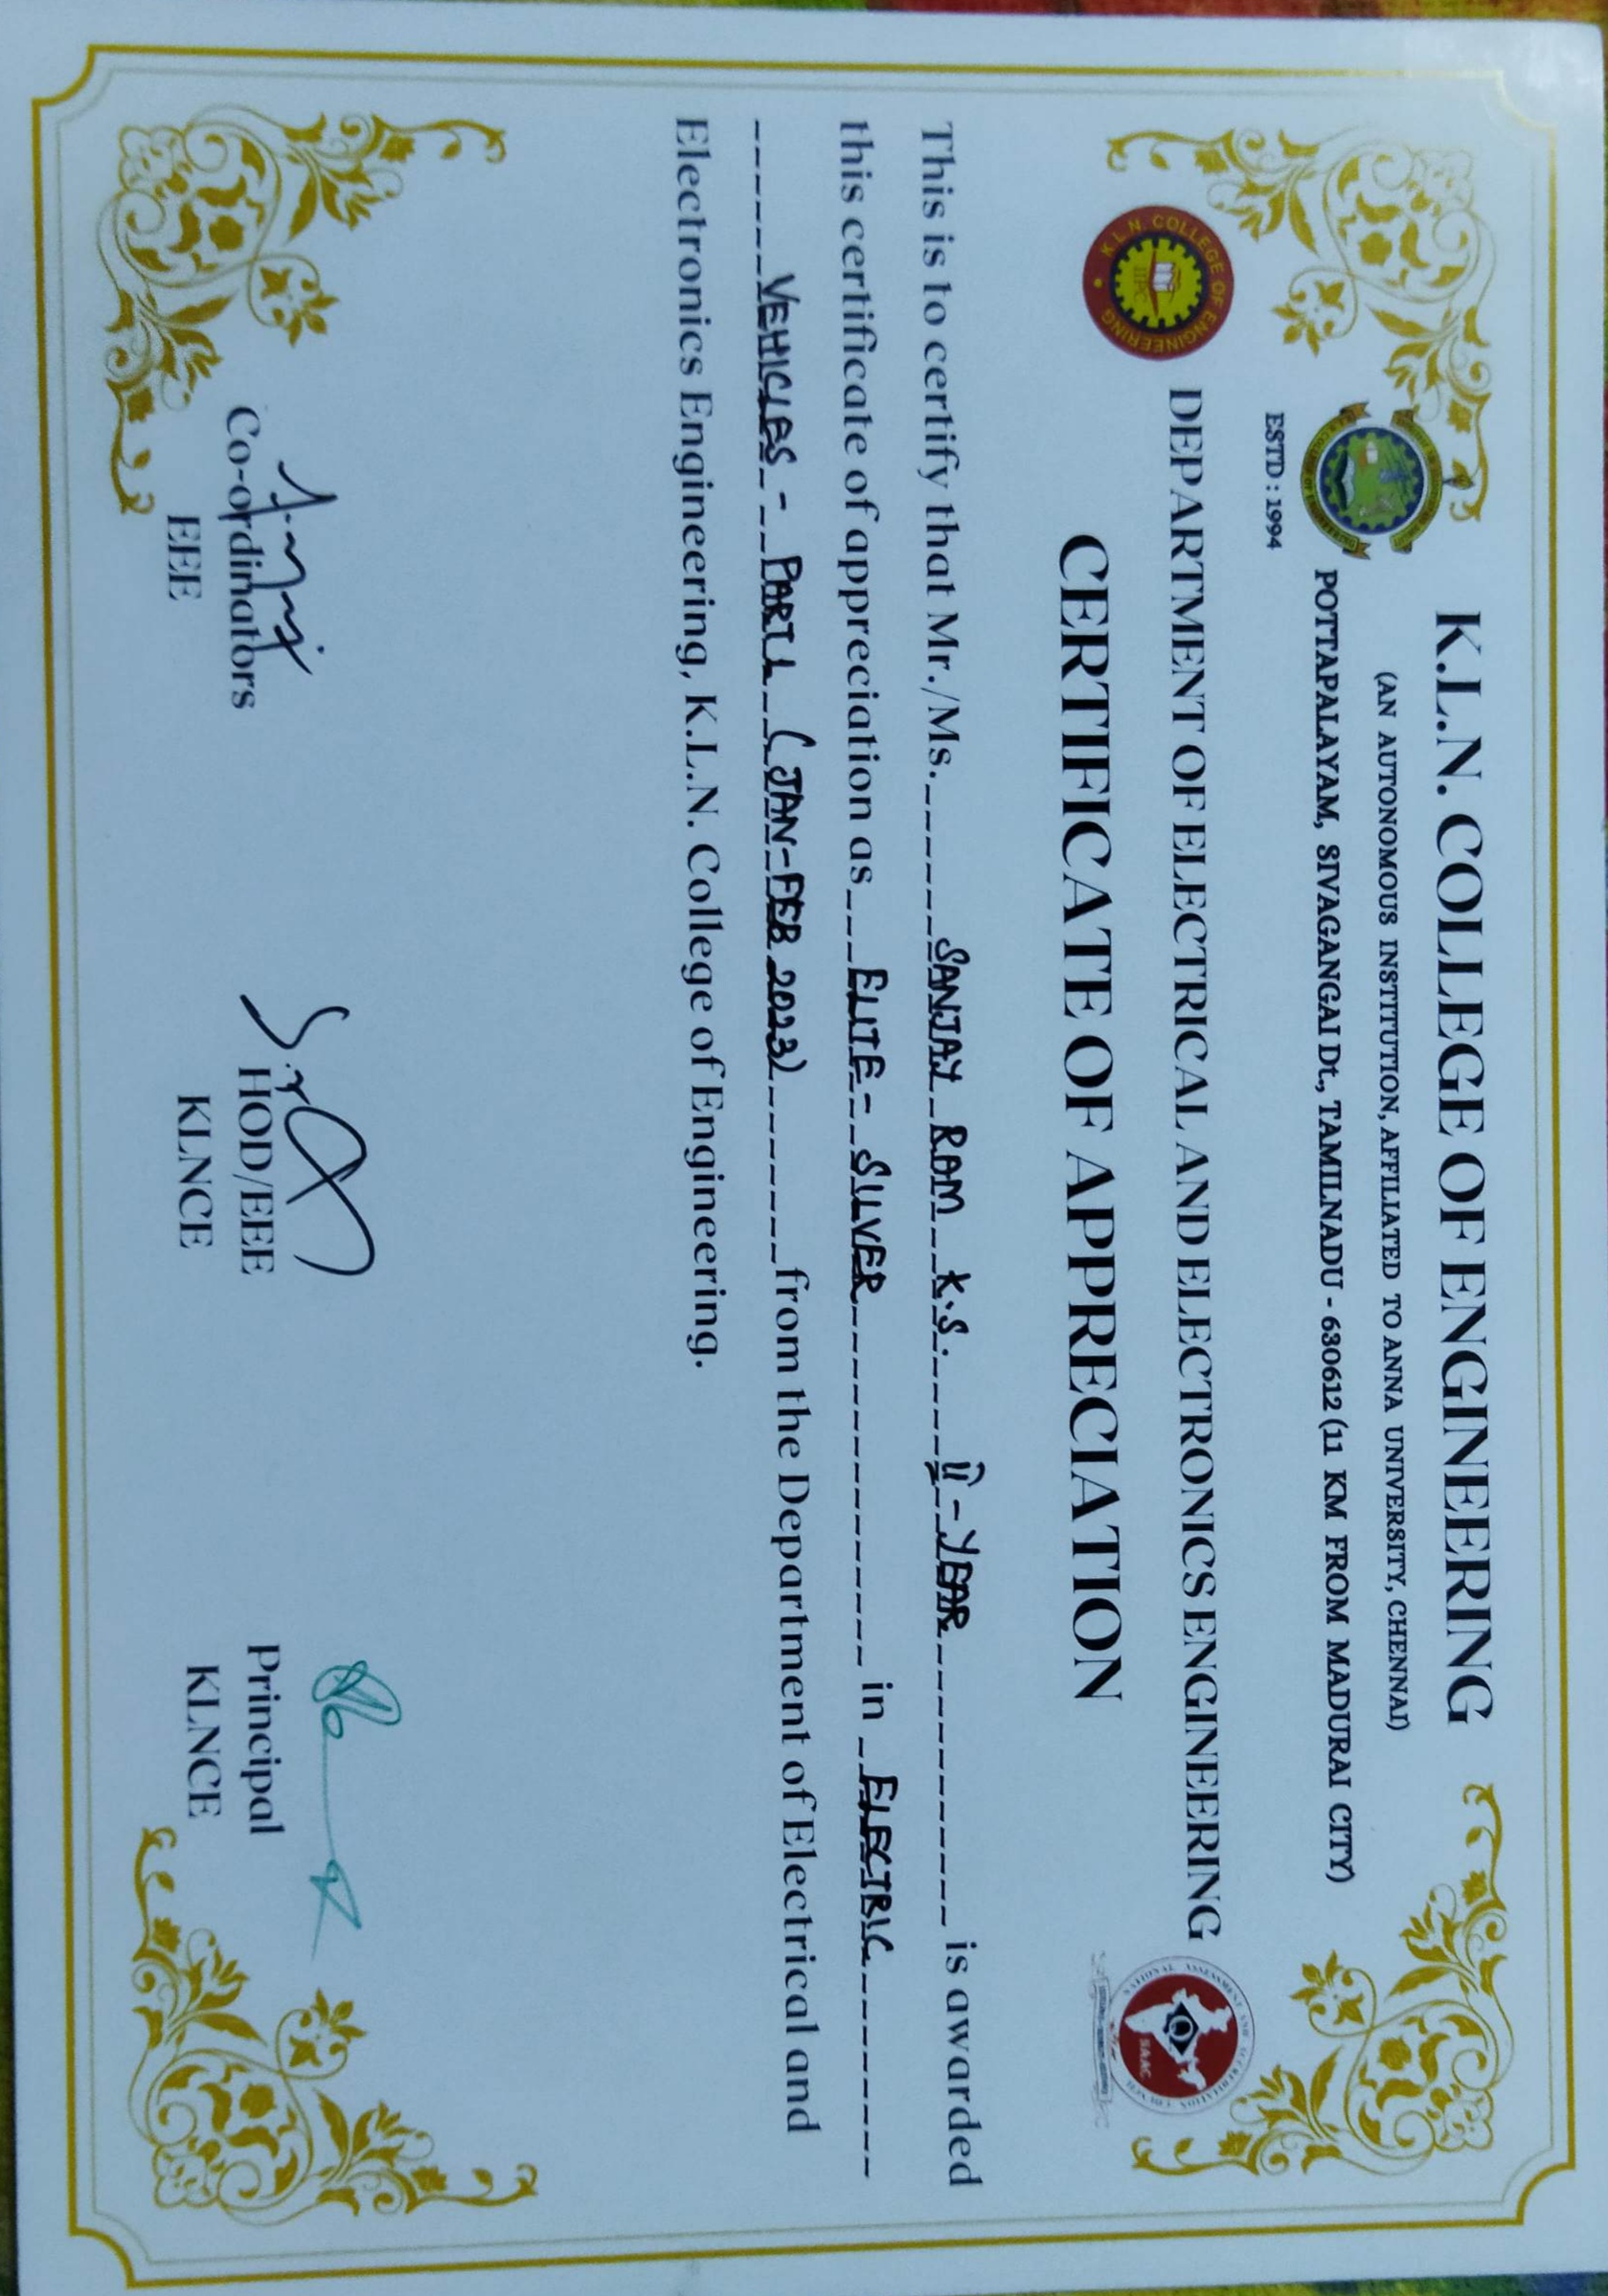 K.L.N. COLLEGE OF ENGINEERING
(AN AUTONOMOUS INSTITUTION, AFFILIATED TO ANNA UNIVERSITY, CHENNAI)
POTTAPALAYAM, SIVAGANGAI Dt., TAMILNADU - 630612 (11 KM FROM MADURAI CITY)
ESTD : 1994
K.L.N. COLLEGE OF ENGINEERING
IIPC
DEPARTMENT OF ELECTRICAL AND ELECTRONICS ENGINEERING
NATIONAL ASSESSMENT AND ACCREDITATION COUNCIL
CERTIFICATE OF APPRECIATION
This is to certify that Mr./Ms. SANJAY RAM K.S. II - YEAR is awarded
this certificate of appreciation as ELITE - SILVER in ELECTRIC
VEHICLES - PART 1 (JAN-FEB 2023) from the Department of Electrical and
Electronics Engineering, K.L.N. College of Engineering.
Co-ordinators
EEE
HOD/EEE
KLNCE
Principal
KLNCE